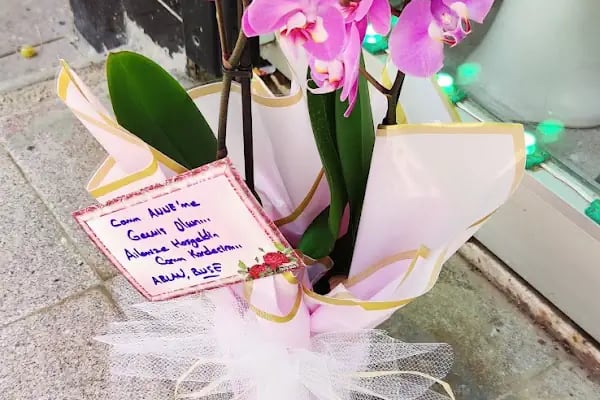 Canım ANNE'me
Geçmiş Olsun...
Ailemize Hoşgeldin
Canım Kardeşim...
ABLAN, BUSE